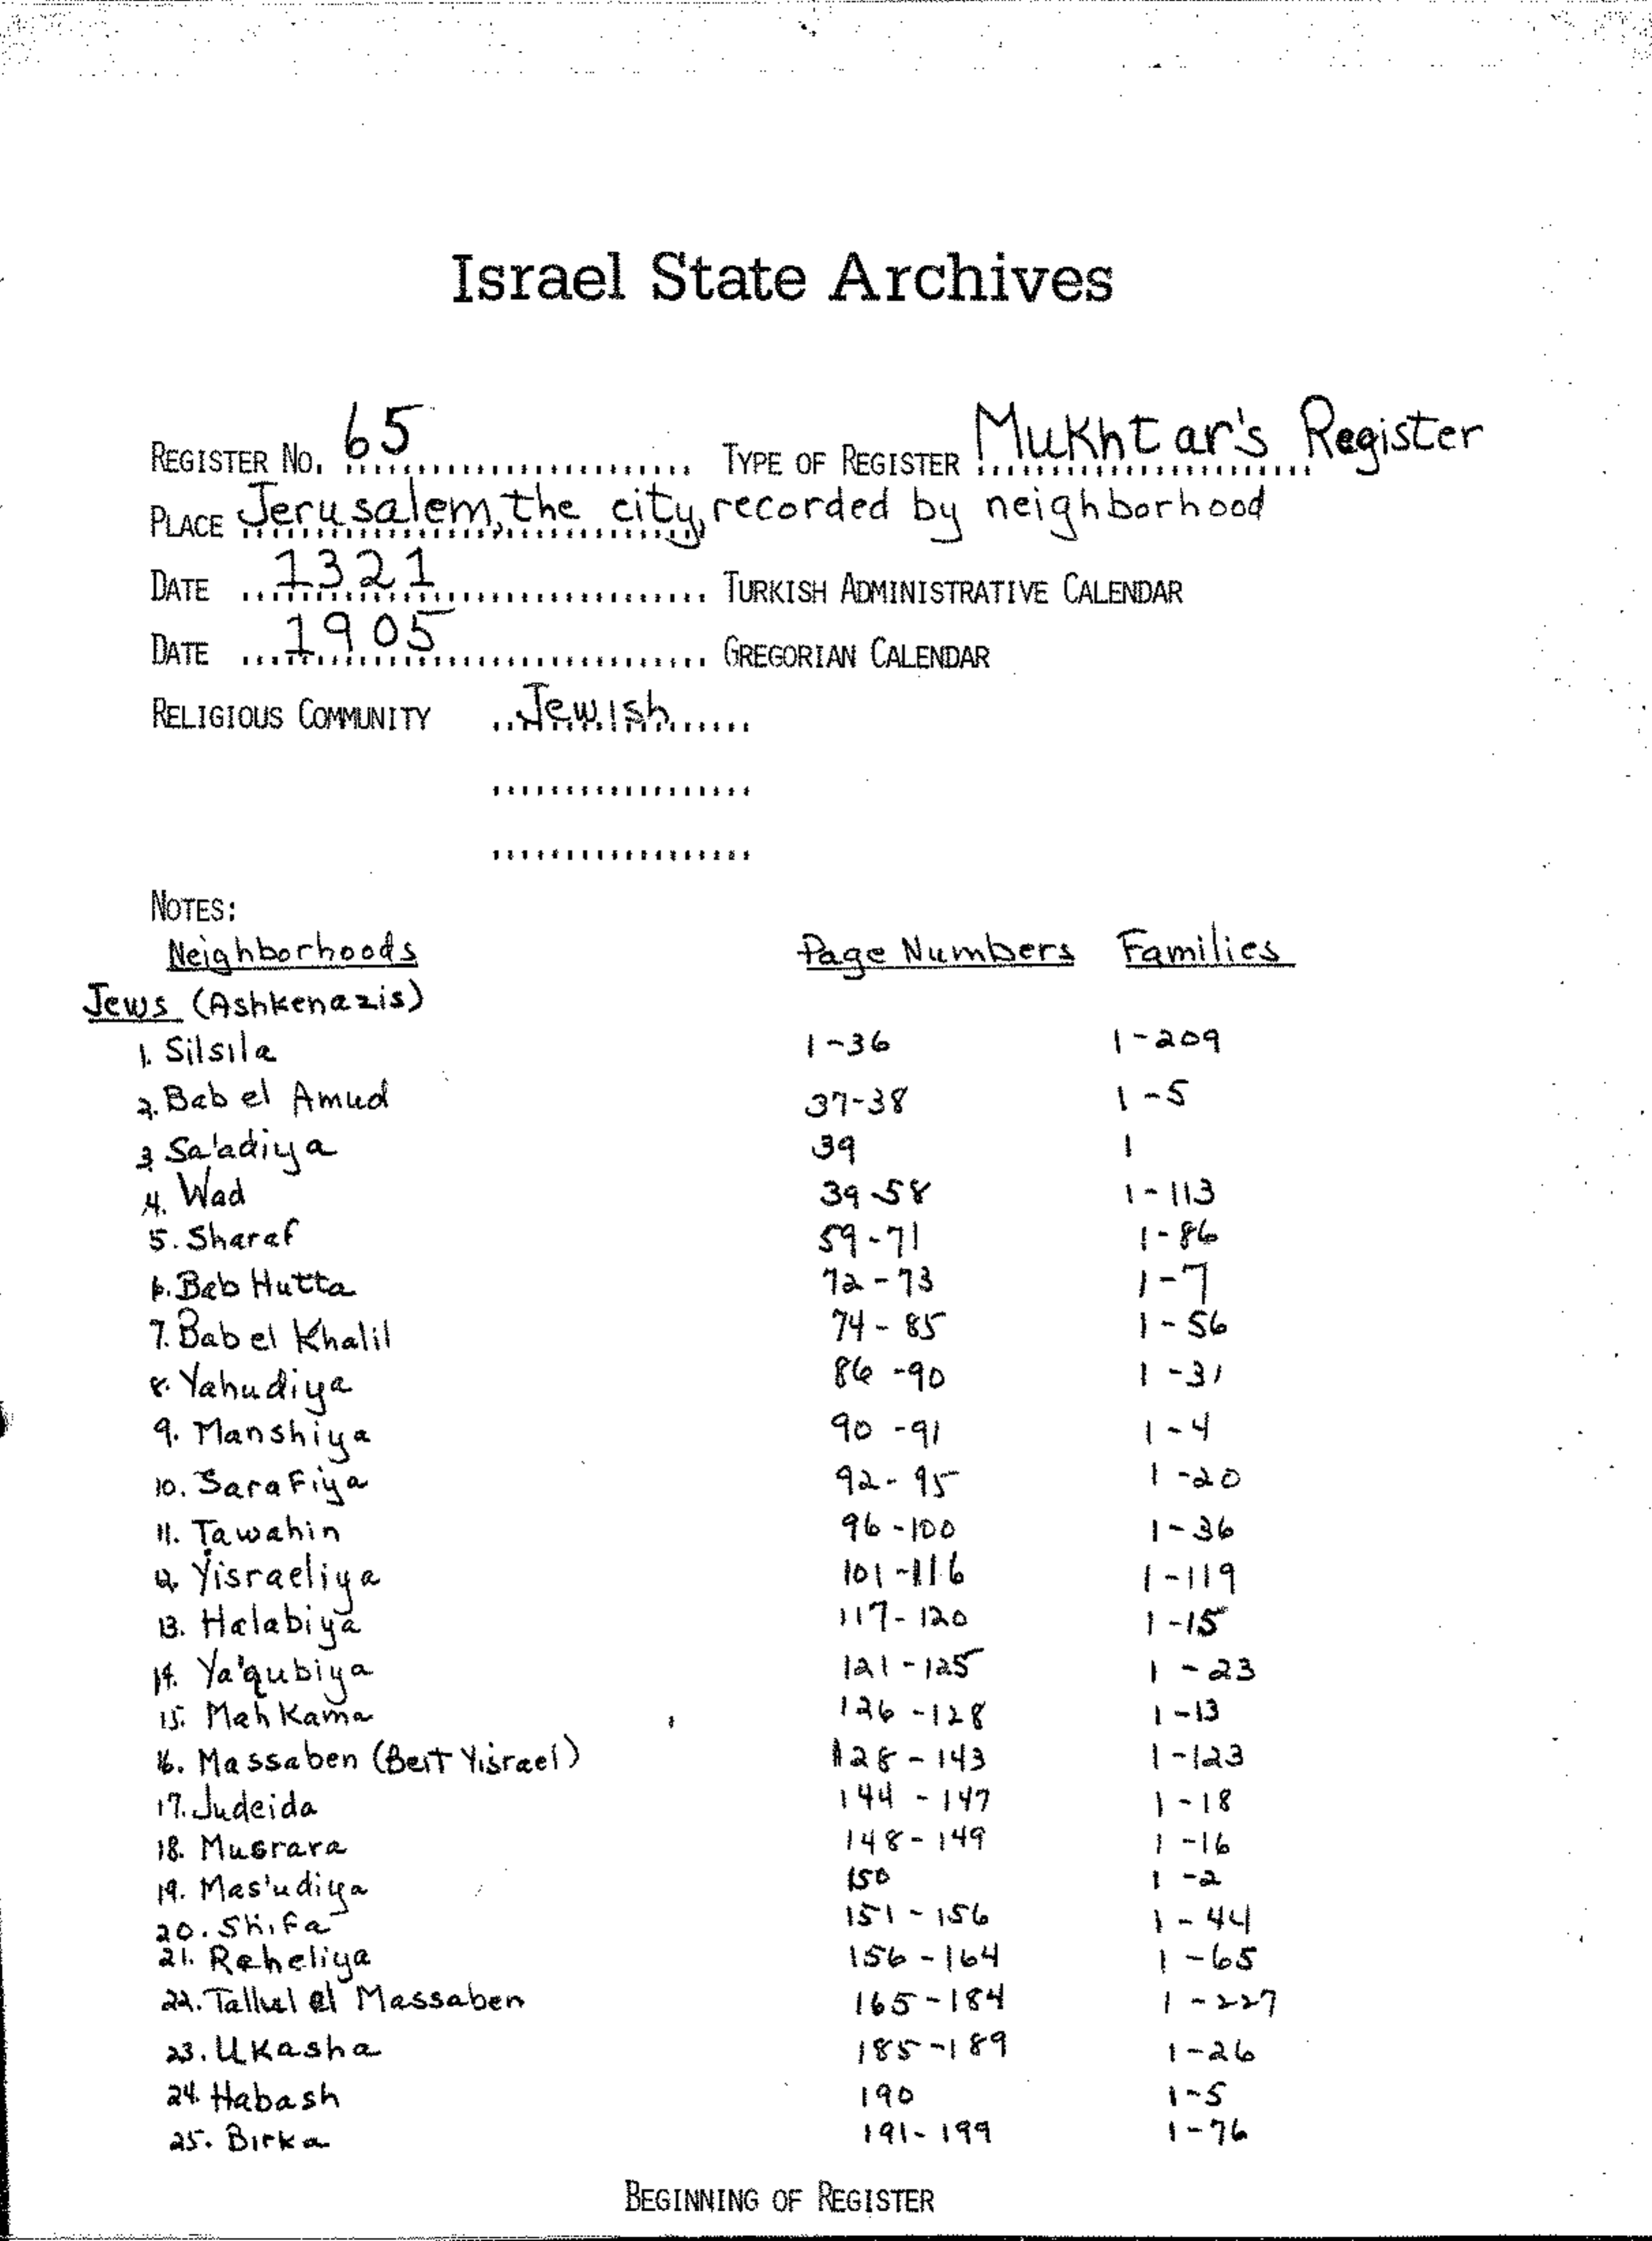 Israel State Archives
REGISTER NO. 65 TYPE OF REGISTER Mukhtar's Register
PLACE Jerusalem, the city, recorded by neighborhood
DATE 1321 TURKISH ADMINISTRATIVE CALENDAR
DATE 1905 GREGORIAN CALENDAR
RELIGIOUS COMMUNITY Jewish
NOTES:
Neighborhoods Page Numbers Families
Jews (Ashkenazis)
1. Silsila 1-36 1-209
2. Bab el Amud 37-38 1-5
3. Sa'adiya 39 1
4. Wad 39-58 1-113
5. Sharaf 59-71 1-86
6. Bab Hutta 72-73 1-7
7. Bab el Khalil 74-85 1-56
8. Yahudiya 86-90 1-31
9. Manshiya 90-91 1-4
10. Sarafiya 92-95 1-20
11. Tawahin 96-100 1-36
12. Yisraeliya 101-116 1-119
13. Halabiya 117-120 1-15
14. Ya'qubiya 121-125 1-23
15. Mahkama 126-128 1-13
16. Massaben (Beit Yisrael) 128-143 1-123
17. Judeida 144-147 1-18
18. Musrara 148-149 1-16
19. Mas'udiya 150 1-2
20. Shifa 151-156 1-44
21. Raheliya 156-164 1-65
22. el Massaben 165-184 1-227
23. Ukasha 185-189 1-26
24. Habash 190 1-5
25. Birka 191-199 1-76
BEGINNING OF REGISTER